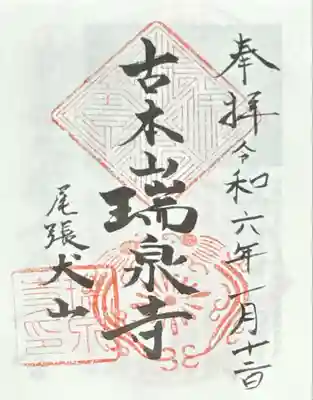 奉拝令和六年一月十二日
古木山瑞泉寺
尾張犬山